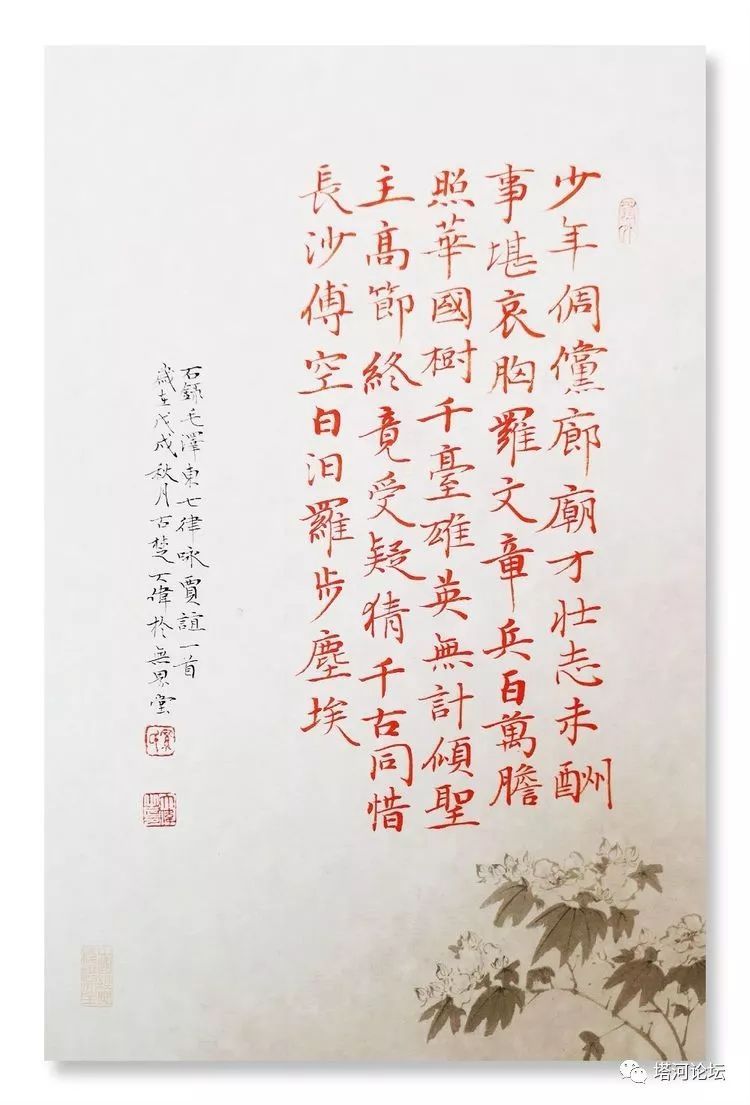 少年倜儻廊廟才壯志未酬
事堪哀胸羅文章兵百萬膽
照華國樹千臺雄英無計傾聖
主高節終竟受疑猜千古同惜
長沙傅空白汨羅步塵埃
右錄毛澤東七律咏賈誼一首
歲在戊戌秋月古楚大偉於無界堂
塔河论坛